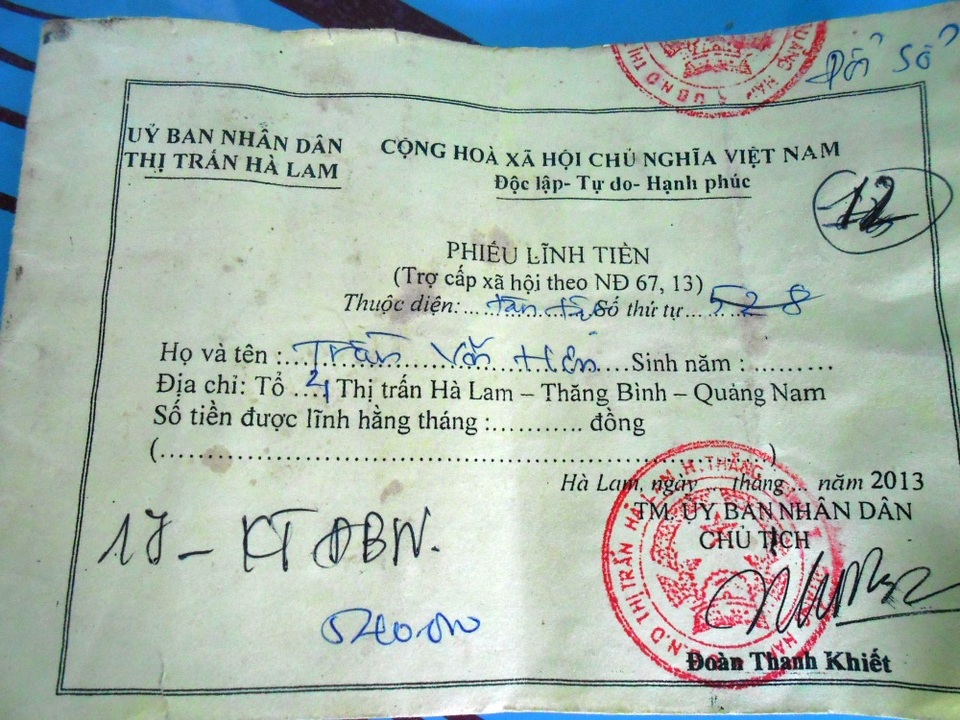 Đổi sổ
UỶ BAN NHÂN DÂN
THỊ TRẤN HÀ LAM
CỘNG HOÀ XÃ HỘI CHỦ NGHĨA VIỆT NAM
Độc lập- Tự do- Hạnh phúc
12
PHIẾU LĨNH TIỀN
(Trợ cấp xã hội theo NĐ 67, 13)
Thuộc diện:... tàn tật Số thứ tự ... 528
Họ và tên :... Trần Văn Hiên ... Sinh năm : .........
Địa chỉ: Tổ ...4 Thị trấn Hà Lam – Thăng Bình – Quảng Nam
Số tiền được lĩnh hằng tháng :........... đồng
(...........................................................................)
Hà Lam, ngày ... tháng ... năm 2013
TM. ỦY BAN NHÂN DÂN
CHỦ TỊCH
17 - KT ĐBN.
540.000
Đoàn Thanh Khiết